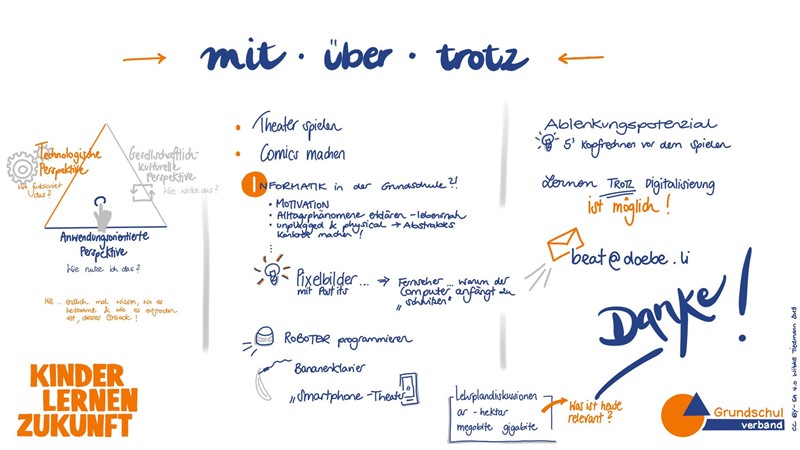 → mit · über · trotz ←
Technologische
Perspektive
Wie funktioniert
das?
Gesellschaftlich-
kulturelle
Perspektive
Wie wirkt das?
Anwendungsorientierte
Perspektive
Wie nutze ich das?
endlich mal wissen, wo es
herkommt & wie es erfunden
ist, dieses Dreieck!
KINDER
LERNEN
ZUKUNFT
• Theater spielen
• Comics machen
INFORMATIK in der Grundschule?!
• MOTIVATION
• Alltagsphänomene erklären - lebensnah
• unplugged & physical → Abstraktes
machen!
Pixelbilder ... →
mit Postits
Fernseher ... warum der
Computer anfängt zu
"schreiben"
ROBOTER programmieren
Bananenklavier
"Smartphone-Theater"
Ablenkungspotenzial
5' Kopfrechnen vor dem Spielen
Lernen TROTZ Digitalisierung
ist möglich!
beat@doebe.li
Danke!
Lehrplandiskussionen
ar - hektar
megabite gigabite
Was ist heute
relevant?
Grundschul
verband
CC BY-SA 4.0 Wibke Tiedmann 2018